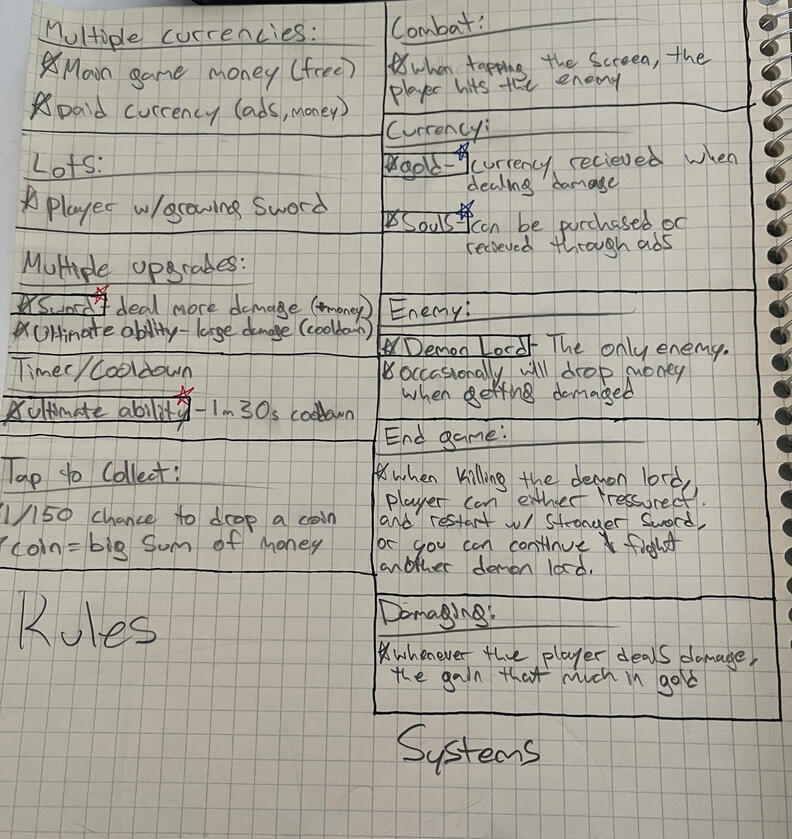 Multiple currencies:
* Main game money (free)
* paid currency (ads, money)
Lots:
* Player w/growing sword
Multiple upgrades:
* Sword - deal more damage (+money)
* Ultimate ability - large damage (cooldown)
Timer/Cooldown
* ultimate ability - 1m 30s cooldown
Tap to Collect:
1/150 chance to drop a coin
coin = big sum of money
Rules
Combat:
* when tapping the screen, the
player hits the enemy
Currency:
* gold - currency recieved when
dealing damage
* Souls - can be purchased or
recieved through ads
Enemy:
* Demon Lord - The only enemy.
* occasionally will drop money
when getting damaged
End game:
* when killing the demon lord,
player can either "ressurect"
and restart w/ stronger sword,
or you can continue & fight
another demon lord.
Damaging:
* whenever the player deals damage,
the gain that much in gold
Systems